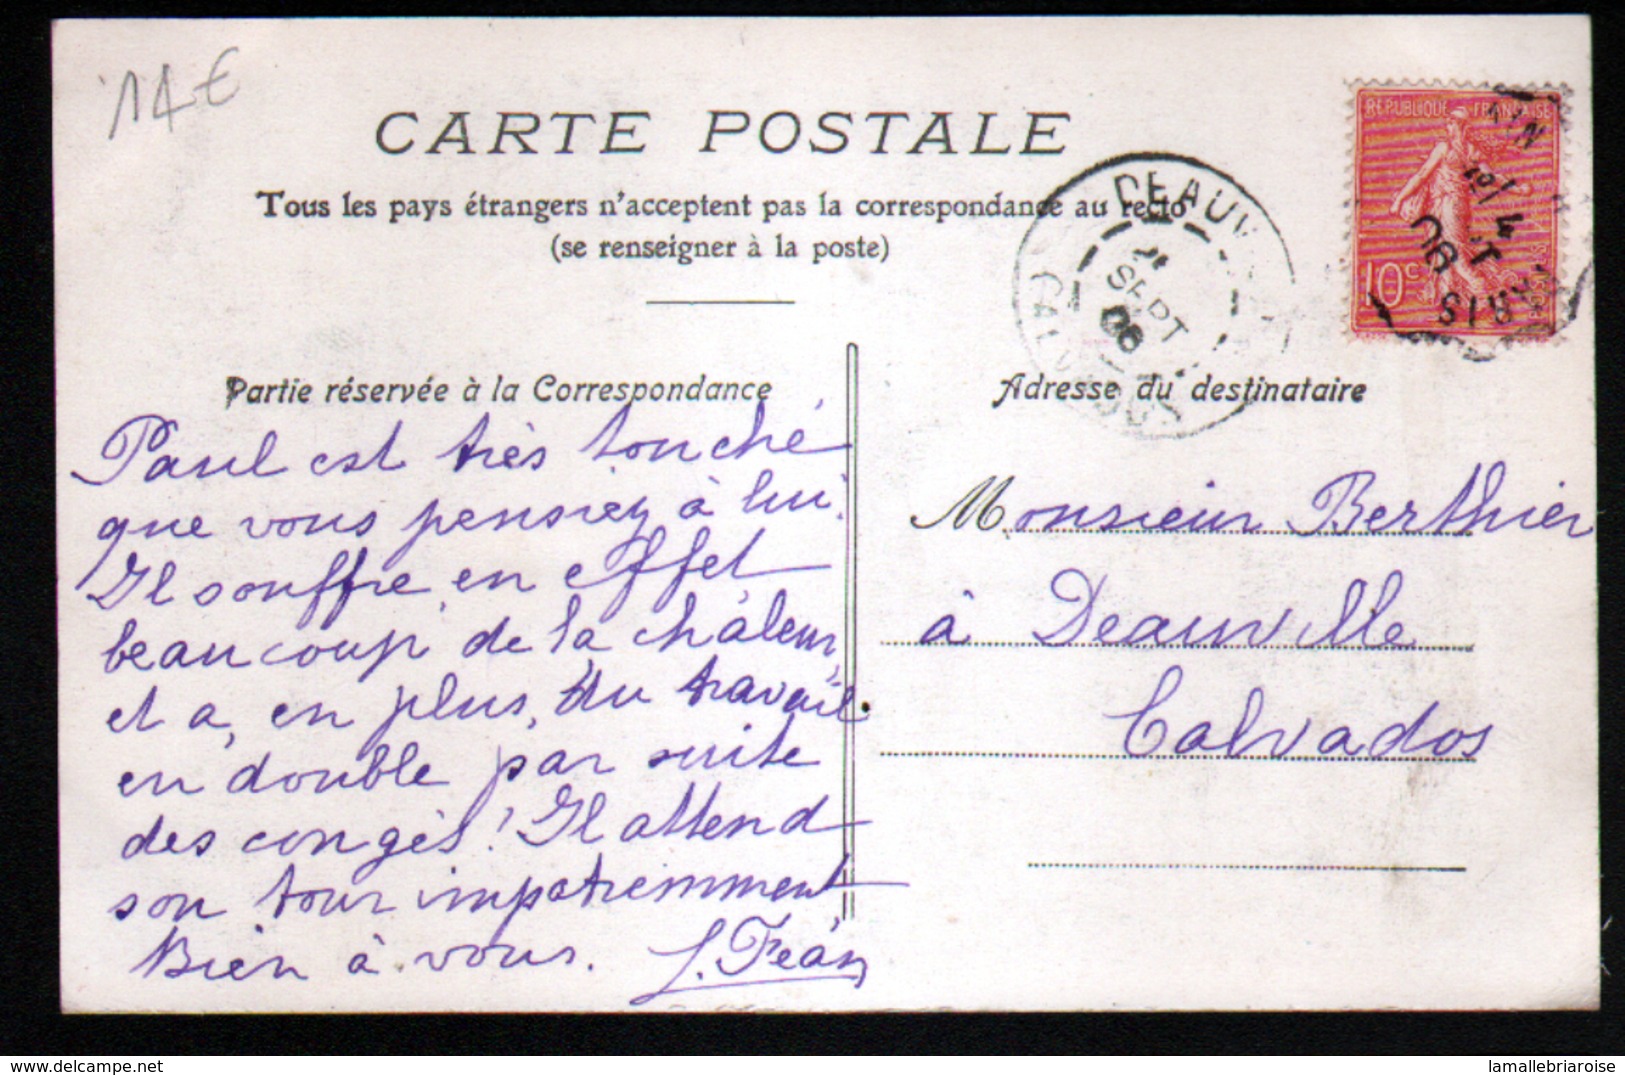 14€
CARTE POSTALE
Tous les pays étrangers n'acceptent pas la correspondance au recto
(se renseigner à la poste)
DEAUV
SEPT
06
CALVADOS
REPUBLIQUE FRANÇAISE
10c
RIS
06
Partie réservée à la Correspondance
Paul est très touché
que vous pensiez à lui.
Il souffre en effet
beaucoup de la châleur,
et a, en plus, du travail
en double par suite
des congés! Il attend
son tour impatiemment
Bien à vous.
Adresse du destinataire
Monsieur Berthier
à Deauville
Calvados
delcampe.net
lamallebriaroise